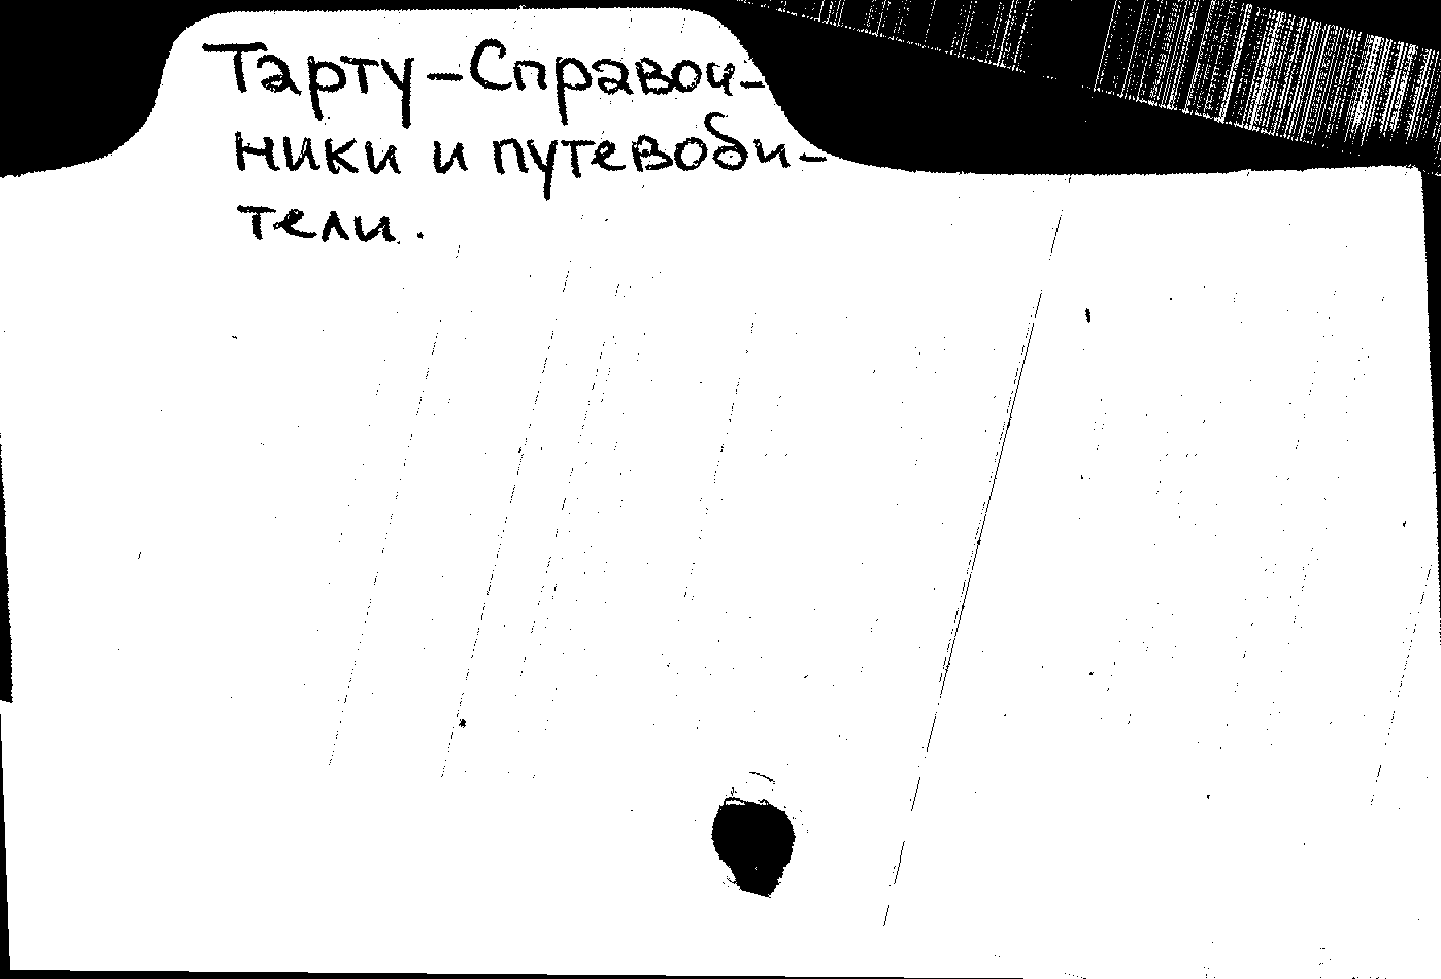 Тарту-Справоч-
ники и путеводи-
тели.